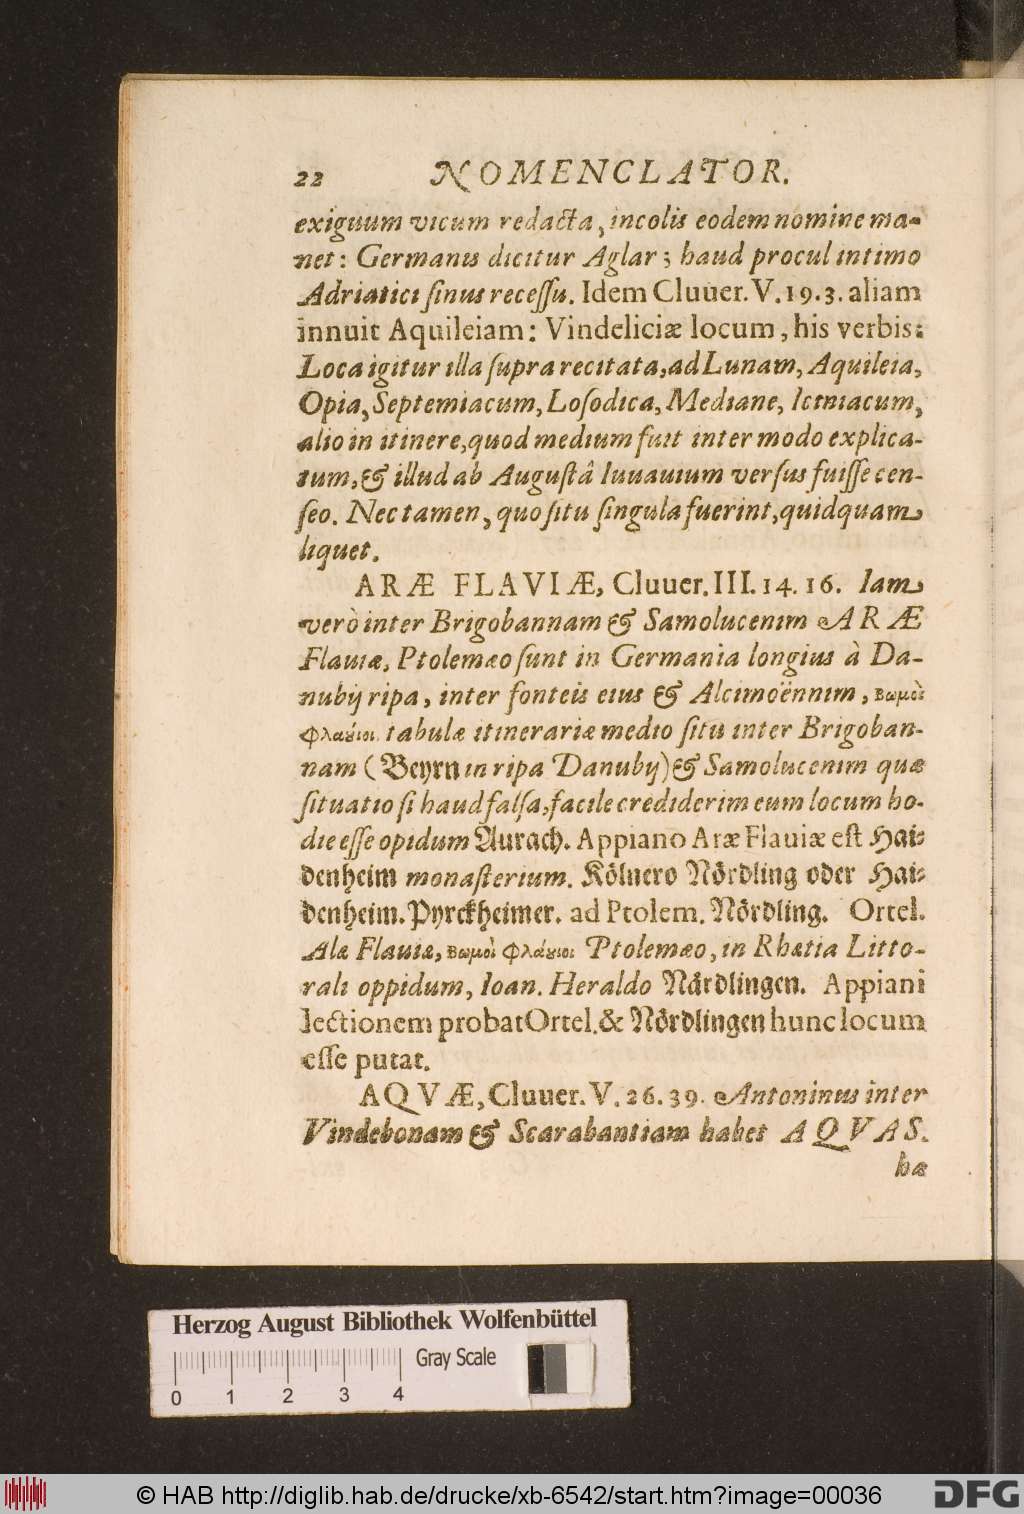 22 NOMENCLATOR.
exiguum vicum redacta, incolis eodem nomine ma-
net: Germanis dicitur Aglar; haud procul intimo
Adriatici ſinus receſſu. Idem Cluuer. V. 19. 3. aliam
innuit Aquileiam: Vindeliciæ locum, his verbis:
Loca igitur illa ſupra recitata, ad Lunam, Aquileia,
Opia, Septemiacum, Loſodica, Mediane, Iciniacum,
alio in itinere, quod medium fuit inter modo explica-
tum, & illud ab Auguſtâ Iuuauium verſus fuiſſe cen-
ſeo. Nec tamen, quo ſitu ſingula fuerint, quidquam
liquet.
ARÆ FLAVIÆ, Cluuer. III. 14. 16. Iam
verò inter Brigobannam & Samolucenim ARÆ
Flauiæ, Ptolemæo ſunt in Germania longius à Da-
nubij ripa, inter fonteis eius & Alcimoënnim, βωμοὶ
Φλαύιοι. tabulæ itinerariæ medio ſitu inter Brigoban-
nam (Beyrn in ripa Danubij) & Samolucenim quæ
ſituatio ſi haud falſa, facile crediderim eum locum ho-
die eſſe opidum Aurach. Appiano Aræ Flauiæ eſt Hai-
denheim monaſterium. Kölnero Nördling oder Hai-
denheim. Pyrckheimer. ad Ptolem. Nördling. Ortel.
Alæ Flauiæ, βωμοὶ Φλάυιοι Ptolemæo, in Rhætia Litto-
rali oppidum, Ioan. Heraldo Nördlingen. Appiani
lectionem probat Ortel. & Nördlingen hunc locum
eſſe putat.
AQVÆ, Cluuer. V. 26. 39. Antoninus inter
Vindebonam & Scarabantiam habet AQVAS.
hæ
Herzog August Bibliothek Wolfenbüttel
Gray Scale
0 1 2 3 4
© HAB http://diglib.hab.de/drucke/xb-6542/start.htm?image=00036
DFG